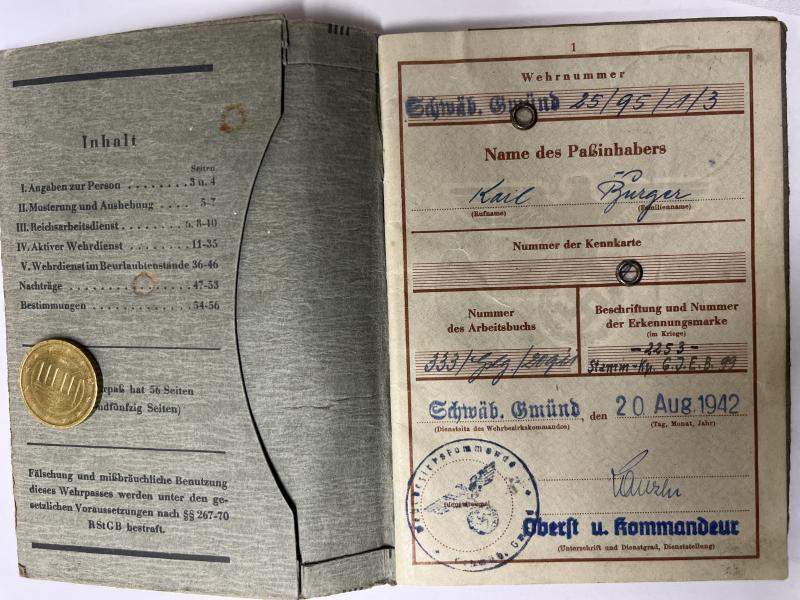 Inhalt
Seiten
I. Angaben zur Person . . . . . . . . 3 u. 4
II. Musterung und Aushebung . . . . 5-7
III. Reichsarbeitsdienst . . . . . . . . 8-10
IV. Aktiver Wehrdienst . . . . . . . . 11-35
V. Wehrdienst im Beurlaubtenstande 36-46
Nachträge . . . . . . . . . . . . . . . 47-53
Bestimmungen . . . . . . . . . . . . 54-56
erpaß hat 56 Seiten
ndfünfzig Seiten)
Fälschung und mißbräuchliche Benutzung
dieses Wehrpasses werden unter den ge-
setzlichen Voraussetzungen nach §§ 267-70
RStGB bestraft.
1
Wehrnummer
Schwäb. Gmünd 25/95/1/3
Name des Paßinhabers
Karl Burger
(Rufname) (Familienname)
Nummer der Kennkarte
Nummer
des Arbeitsbuchs
333/
Beschriftung und Nummer
der Erkennungsmarke
(im Kriege)
-2253-
Stamm-Kp. G.J.E.B. 99
Schwäb. Gmünd, den 20 Aug. 1942
(Dienstsitz des Wehrbezirkskommandos) (Tag, Monat, Jahr)
(Dienstsiegel)
Oberst u. Kommandeur
(Unterschrift und Dienstgrad, Dienststellung)